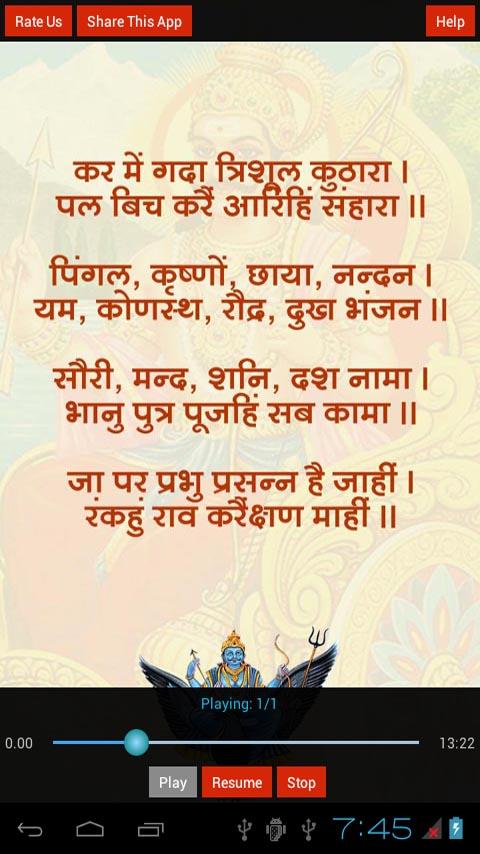 Rate Us Share This App Help
कर में गदा त्रिशूल कुठारा ।
पल बिच करैं आरिहिं संहारा ॥
पिंगल, कृष्णों, छाया, नन्दन ।
यम, कोणस्थ, रौद्र, दुख भंजन ॥
सौरी, मन्द, शनि, दश नामा ।
भानु पुत्र पूजहिं सब कामा ॥
जा पर प्रभु प्रसन्न है जाहीं ।
रंकहुं राव करैंक्षण माहीं ॥
Playing: 1/1
0.00 13:22
Play Resume Stop
7:45